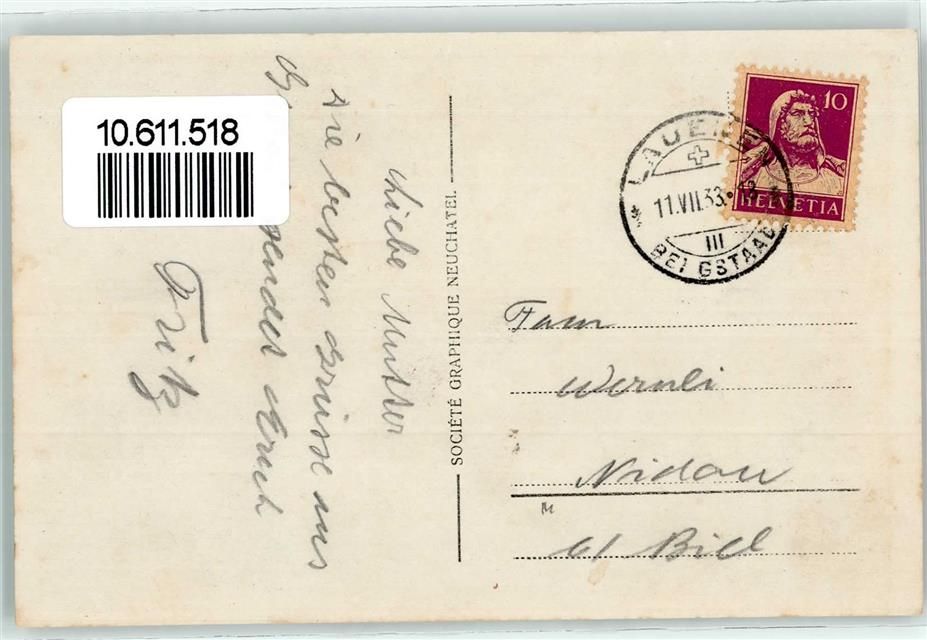 10.611.518
Liebe Mutter
die besten Grüsse aus
sendet Euch
Fritz
SOCIÉTÉ GRAPHIQUE NEUCHATEL.
10
HELVETIA
LAUENEN
11.VII.33
III
BEI GSTAAD
Fam
Wernli
Nidau
b/ Biel